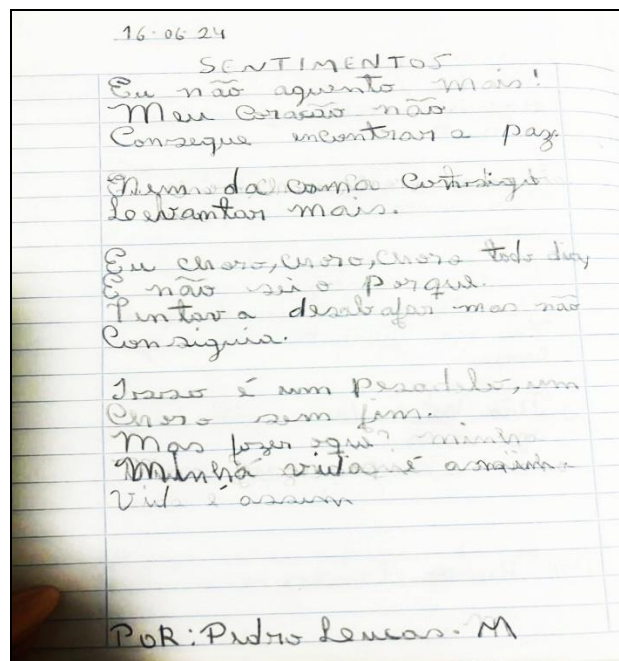 16-06-24
SENTIMENTOS
Eu não aguento mais!
Meu coração não
Consegue encontrar a paz.
Nem da cama Consigo
Levantar mais.
Eu choro, choro, choro todo dia,
E não sei o porque.
Tintava desabafar mas não
Consiguia.
Isso é um pesadelo, um
Choro sem fim.
Mas fazer oquê? minha
Minha vida é assim.
Vida é assim
POR: Pedro Leucas. M